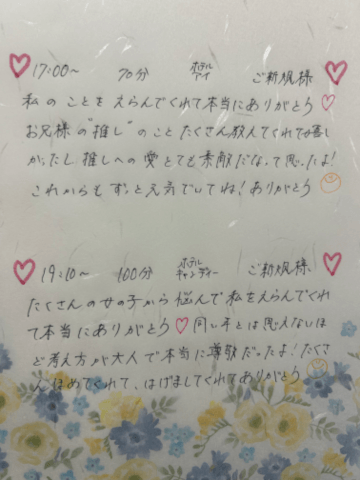 17:00〜 70分 ホテル アイ ご新規様
私のことをえらんでくれて本当にありがとう♡
お兄様の"推し"のことたくさん教えてくれて嬉し
かったし、推しへの愛とても素敵だなって思ったよ!
これからもずっと元気でいてね!ありがとう
19:10〜 100分 ホテル キャンディー ご新規様
たくさんの女の子から悩んで私をえらんでくれ
て本当にありがとう♡同い年とは思えないほ
ど考え方が大人で本当に尊敬だったよ!たくさ
んほめてくれて、はげましてくれてありがとう